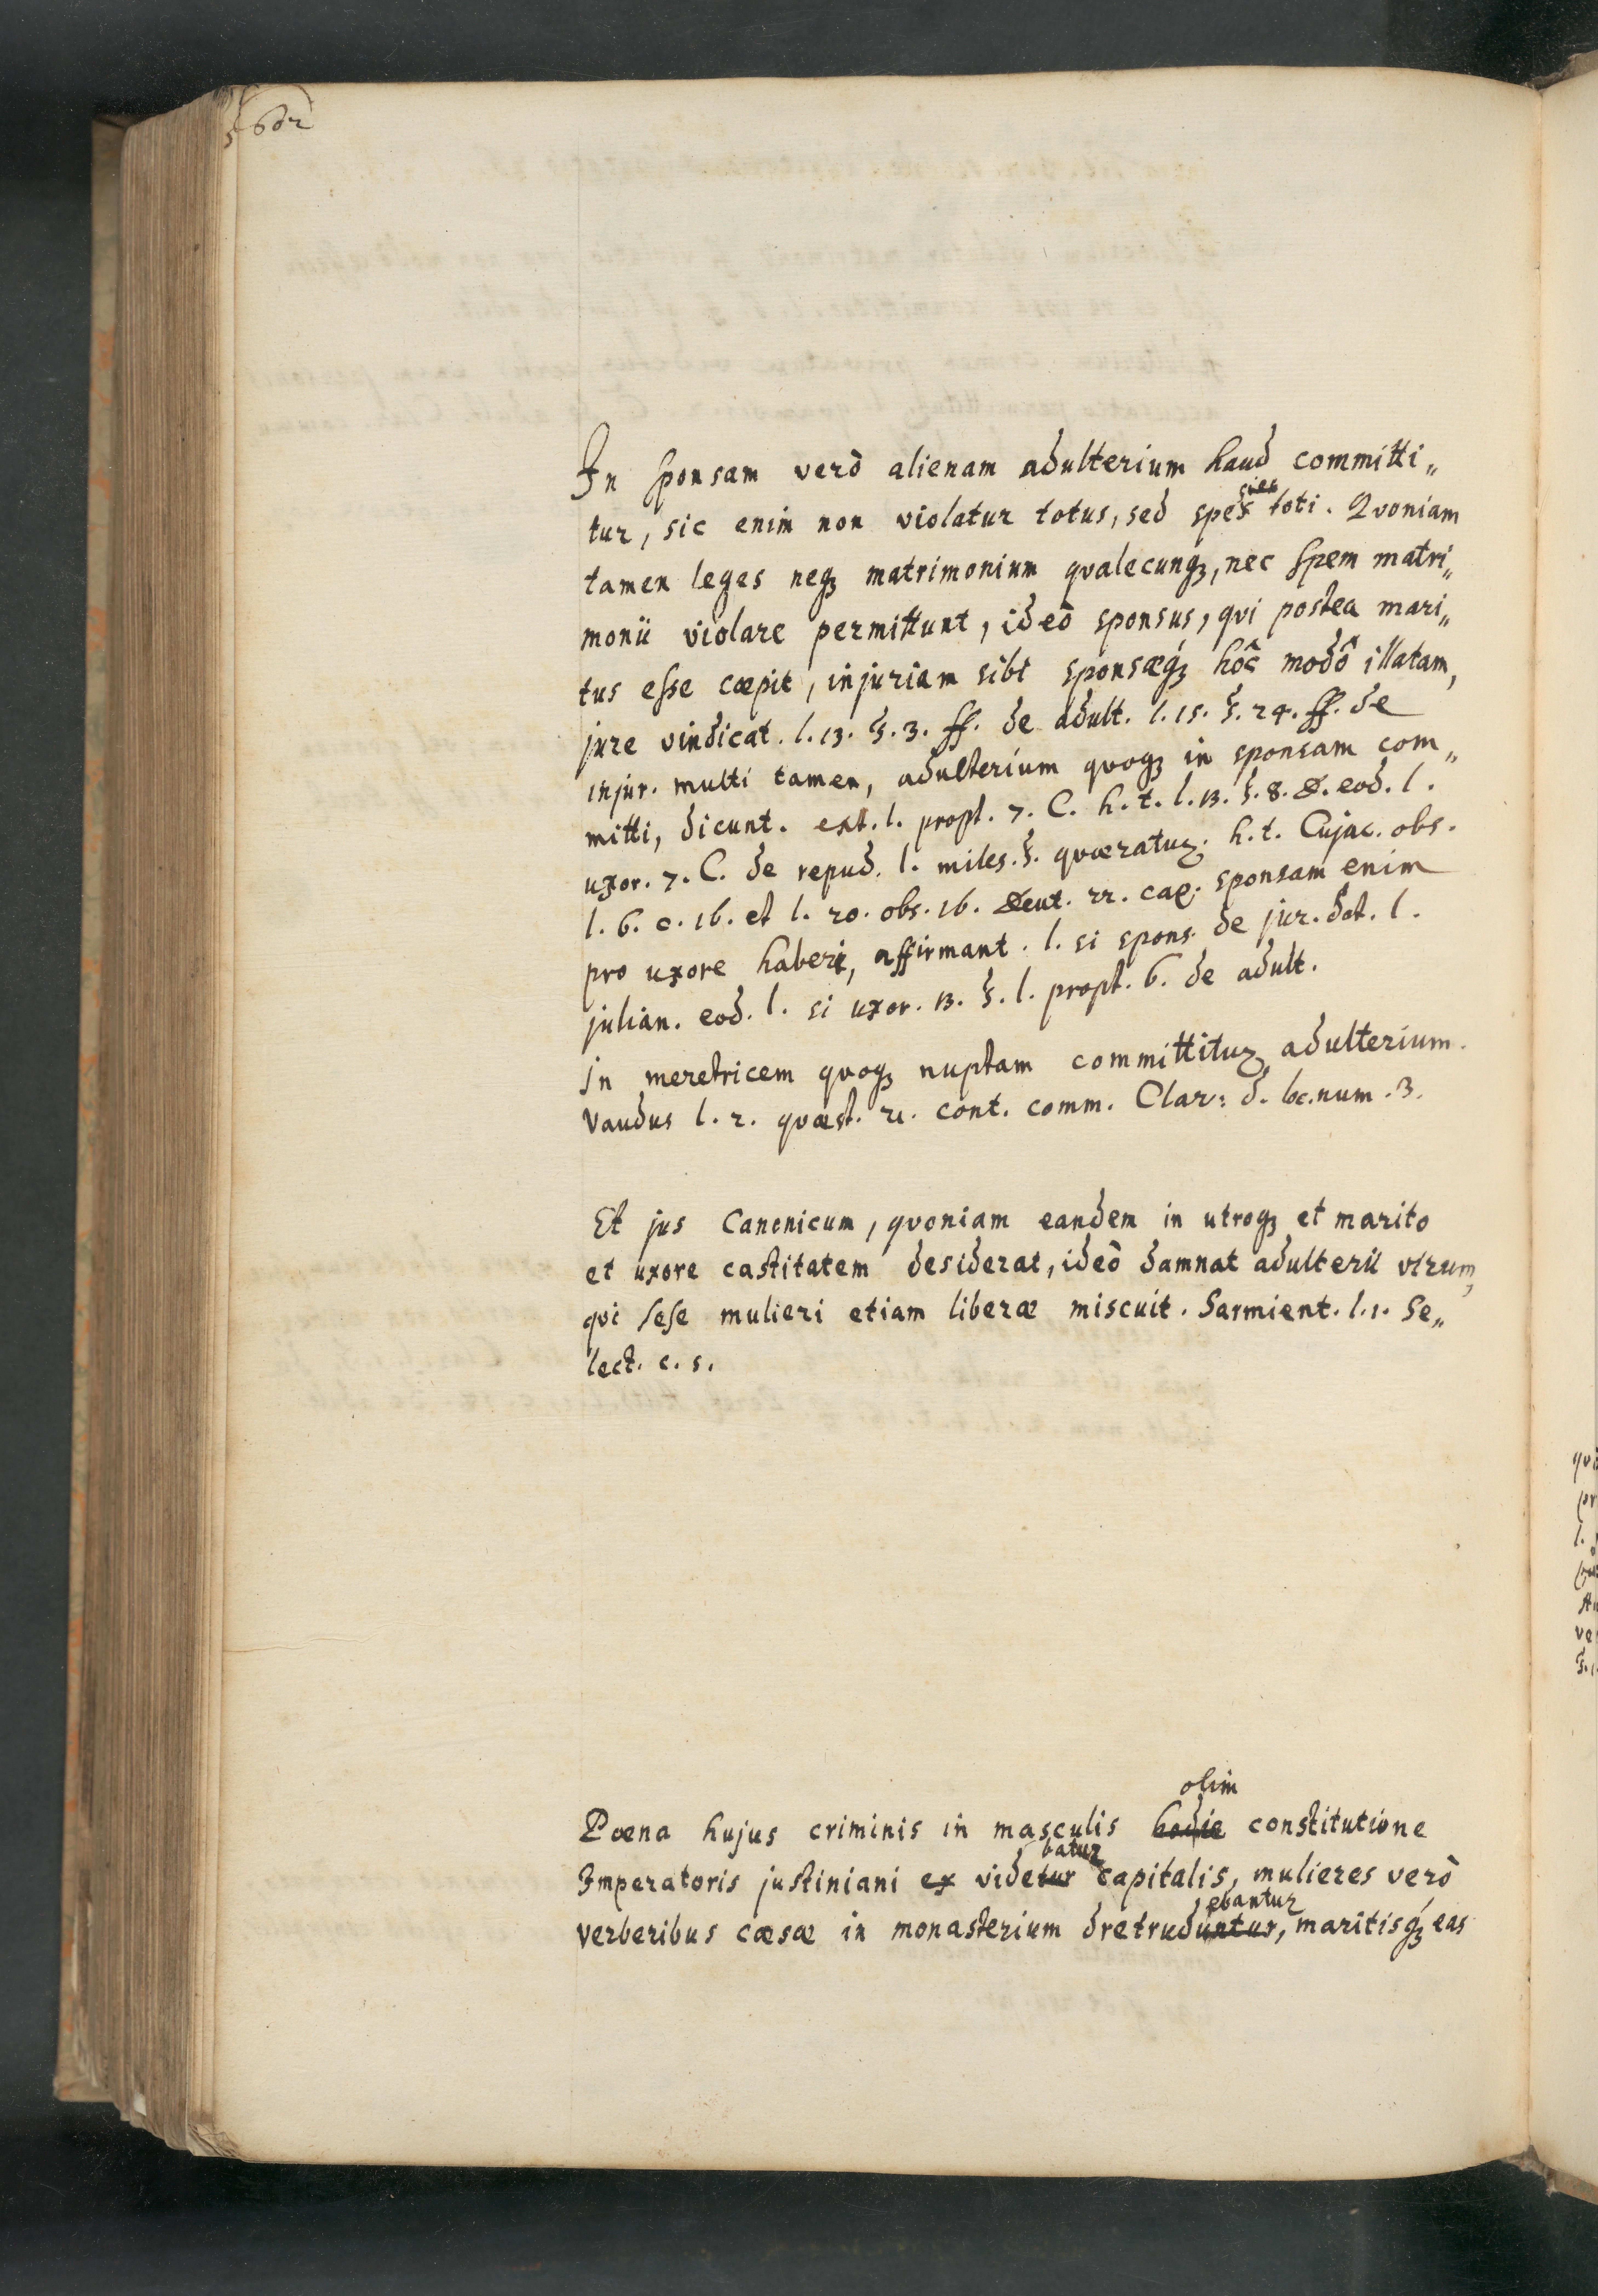 602
In sponsam verò alienam adulterium haud committi„
tur, sic enim non violatur totus, sed spes toti. Qvoniam
tamen leges neqꝫ matrimonium qvalecunqꝫ, nec spem matri„
monii violare permittunt, ideò sponsus, qvi postea mari„
tus esse cœpit, injuriam sibi sponsæqꝫ hôc modô illatam,
jure vindicat. l. 13. §. 3. ff. de adult. l. 15. §. 24. ff. de
injur. multi tamen, adulterium qvoqꝫ in sponsam com„
mitti, dicunt. ext. l. propt. 7. C. h. t. l. 13. §. 8. D. eod. l.
uxor. 7. C. de repud. l. miles. §. qværatur. h. t. Cujac. obs.
l. 6. c. 16. et l. 20. obs. 16. Deut. 22. cap. sponsam enim
pro uxore haberi, affirmant. l. si spons. de jur. dot. l.
julian. eod. l. si uxor. 13. §. l. propt. 6. de adult.
In meretricem qvoqꝫ nuptam committitur adulterium.
Vaudus l. 2. qvæst. 21. cont. comm. Clar: d. loc. num. 3.
Et jus Canonicum, qvoniam eandem in utroqꝫ et marito
et uxore castitatem desiderat, ideò damnat adulterii virum,
qvi sese mulieri etiam liberæ miscuit. Sarmient. l. 1. Se„
lect. c. 5.
olim
Pœna hujus criminis in masculis hodie constitutione
batur
Imperatoris justiniani ex videtur capitalis, mulieres verò
ebantur
verberibus cæsæ in monasterium dretruduntur, maritisqꝫ eas